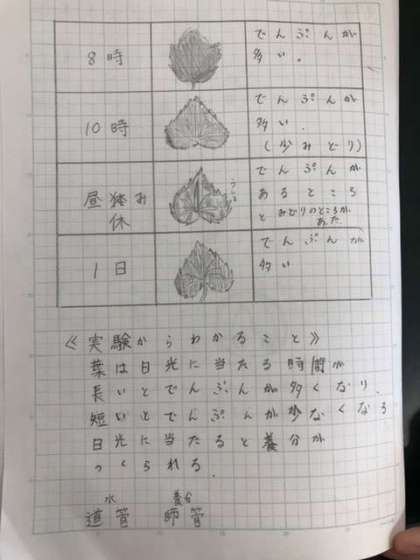 8時
でんぷんが
多い。
10時
でんぷんが
多い.
(少みどり)
昼休み
休
でんぷんが
あるところ
とみどりのところが
あった.
1日
でんぷんが
多い
《実験からわかること》
葉は日光に当たる時間が
長いとでんぷんが多くなり.
短いとでんぷんが少なくなる
日光に当たると養分が
つくられる.
水 養分
道管 師管